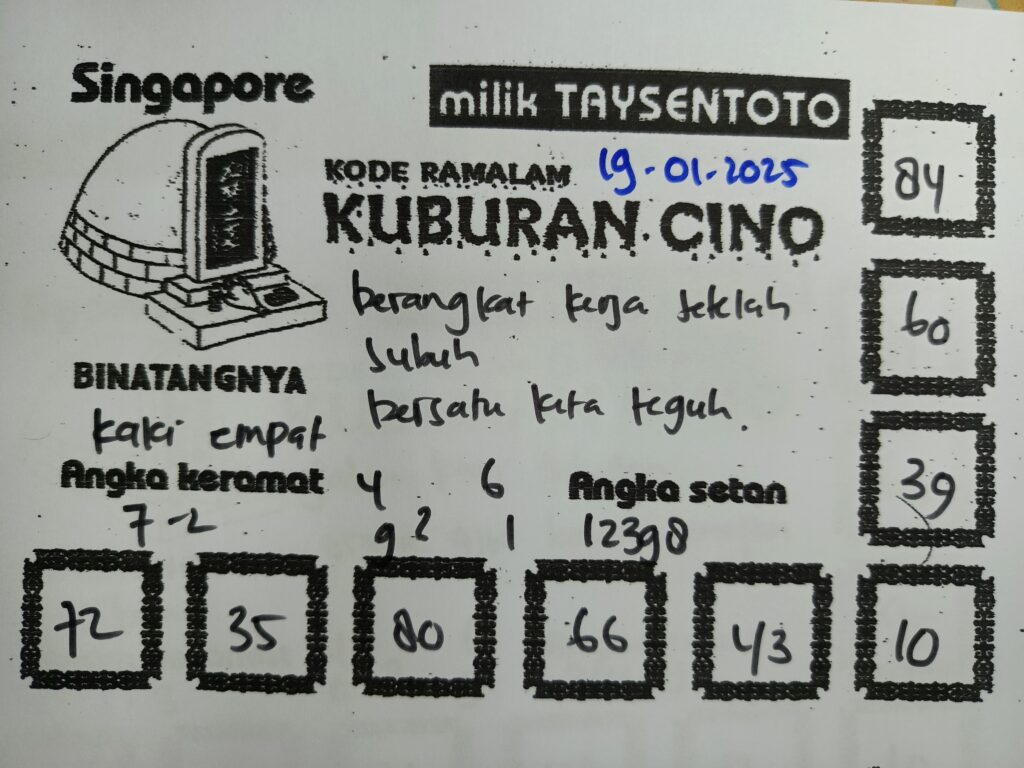 Singapore
milik TAYSENTOTO
KODE RAMALAM 19-01-2025
KUBURAN CINO
berangkat kerja setelah
subuh
bersatu kita teguh.
BINATANGNYA
kaki empat
Angka keramat
7-2
4 6
9 2 1
Angka setan
12398
84
60
39
72 35 80 66 43 10